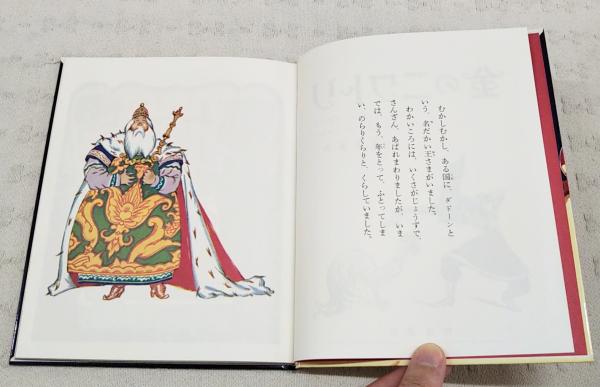 むかしむかし、ある国に、ダドーンと
いう、名だかい王さまがいました。
わかいころには、いくさがじょうずで、
さんざん、あばれまわりましたが、いま
では、もう、年をとって、ふとってしま
い、のらりくらりと、くらしていました。
金のニワトリ